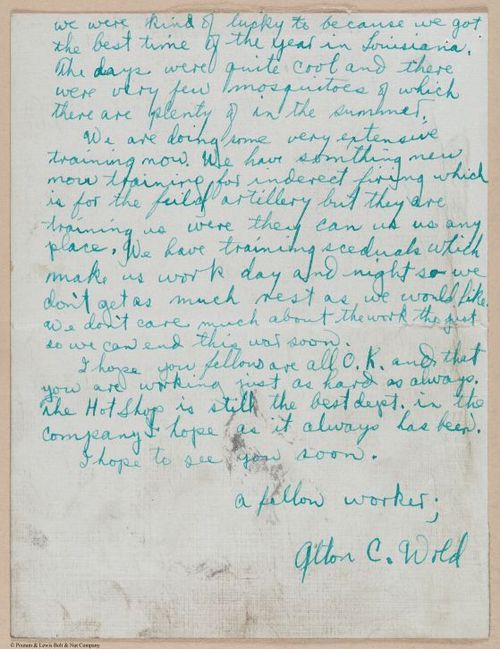 we were kind of lucky to because we got
the best time of the year in Louisiana.
The days were quite cool and there
were very few mosquitoes of which
there are plenty of in the summer.
We are doing some very extensive
training now. We have somthing new
now training for inderect firing which
is for the feild artillery but they are
training us were they can us us any
place. We have training sceduals which
make us work day and night so we
don't get as much rest as we would like.
We don't care much about the work tho just
so we can end this war soon.
I hope you fellow are all O.K. and that
you are working just as hard as always.
The Hot Shop is still the best dept. in the
company I hope as it always has been.
I hope to see you soon.
a fellow worker;
C. Wold
© Pounsn & Lewis Bolt & Nut Company